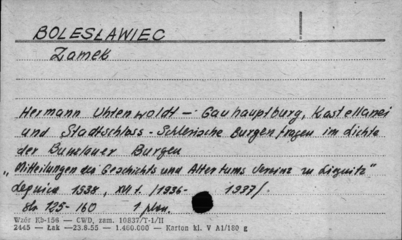 BOLESŁAWIEC
Zamek
Hermann Uhtenwoldt - Gauhauptburg, Kastellanei
und Stadtschloss - Schlesische Burgenfragen im Lichte
der Bunzlauer Burgen
„Mitteilungen des Geschichts und Altertums Vereins zu Liegnitz"
Legnica 1938, XVI t. /1936- 1937/.
str. 125-160 1 plan.
Wzór Kb-156 — CWD, zam. 10837/T-1/II
2445 — Łak —23.8.55 — 1.400.000 — Karton kl. V A1/180 g